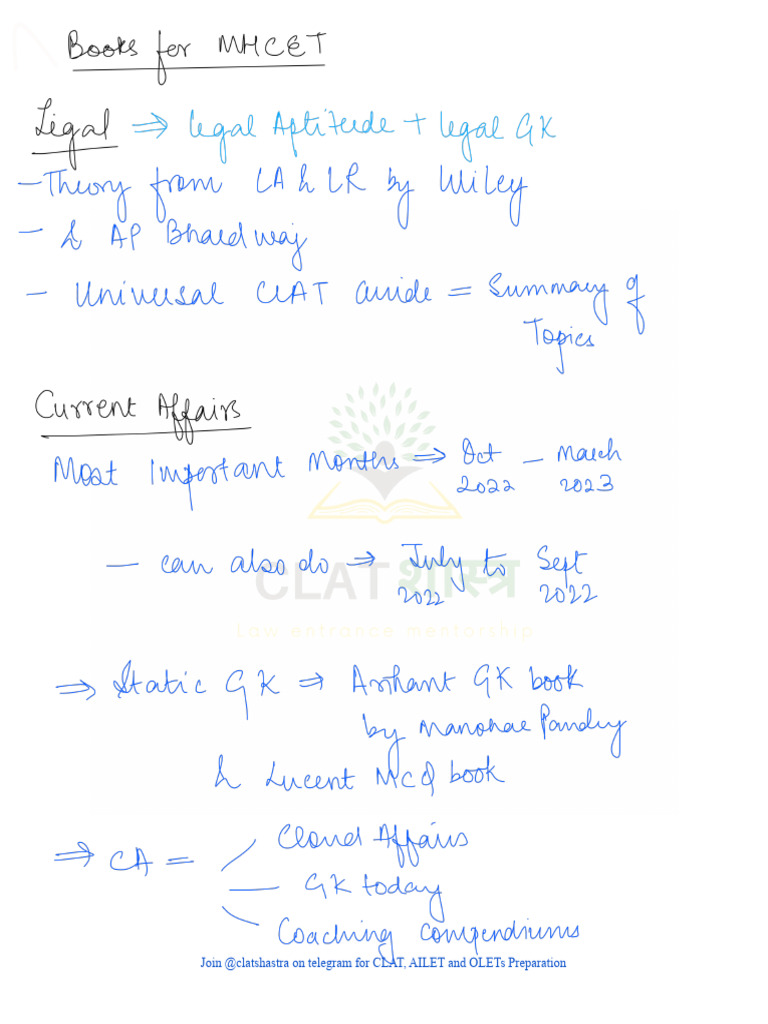 Books for MHCET
Legal ⇒ legal Aptitude + legal GK
- Theory from LA & LR by Wiley
- & AP Bhardwaj
- Universal CLAT Guide = Summary of
Topics
Current Affairs
Most Important Months ⇒ Oct 2022 - March 2023
- can also do → July 2022 to Sept 2022
CLAT शास्त्र
Law entrance mentorship
⇒ Static GK ⇒ Arihant GK book
by Manohar Pandey
& Lucent MCQ book
⇒ CA = Cloud Affairs
- GK today
Coaching compendiums
Join @clatshastra on telegram for CLAT, AILET and OLETs Preparation